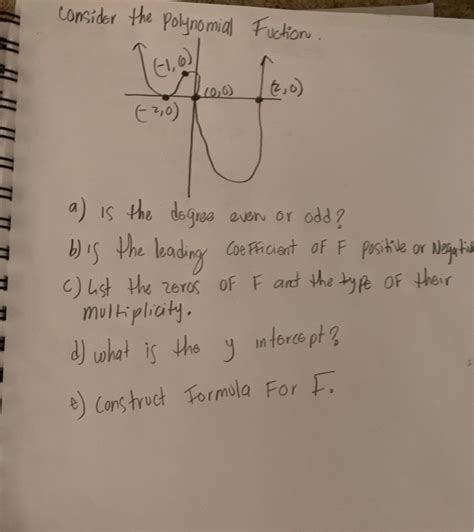 Consider the Polynomial Fuction.
(-1,6)
(0,0)
(2,0)
(-2,0)
a) is the degree even or odd?
b) is the leading coefficient of F positive or Negative
c) List the zeros of F and the type of their
multiplicity.
d) what is the y intercept?
e) Construct Formula For F.